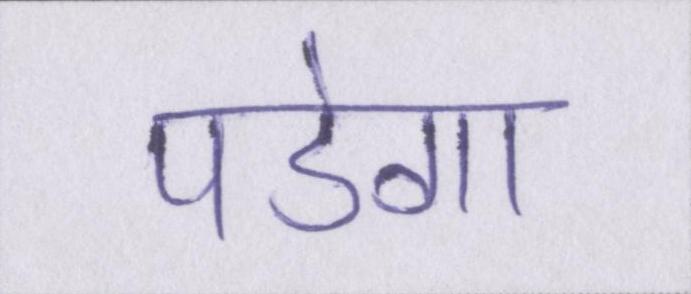 पडेगा